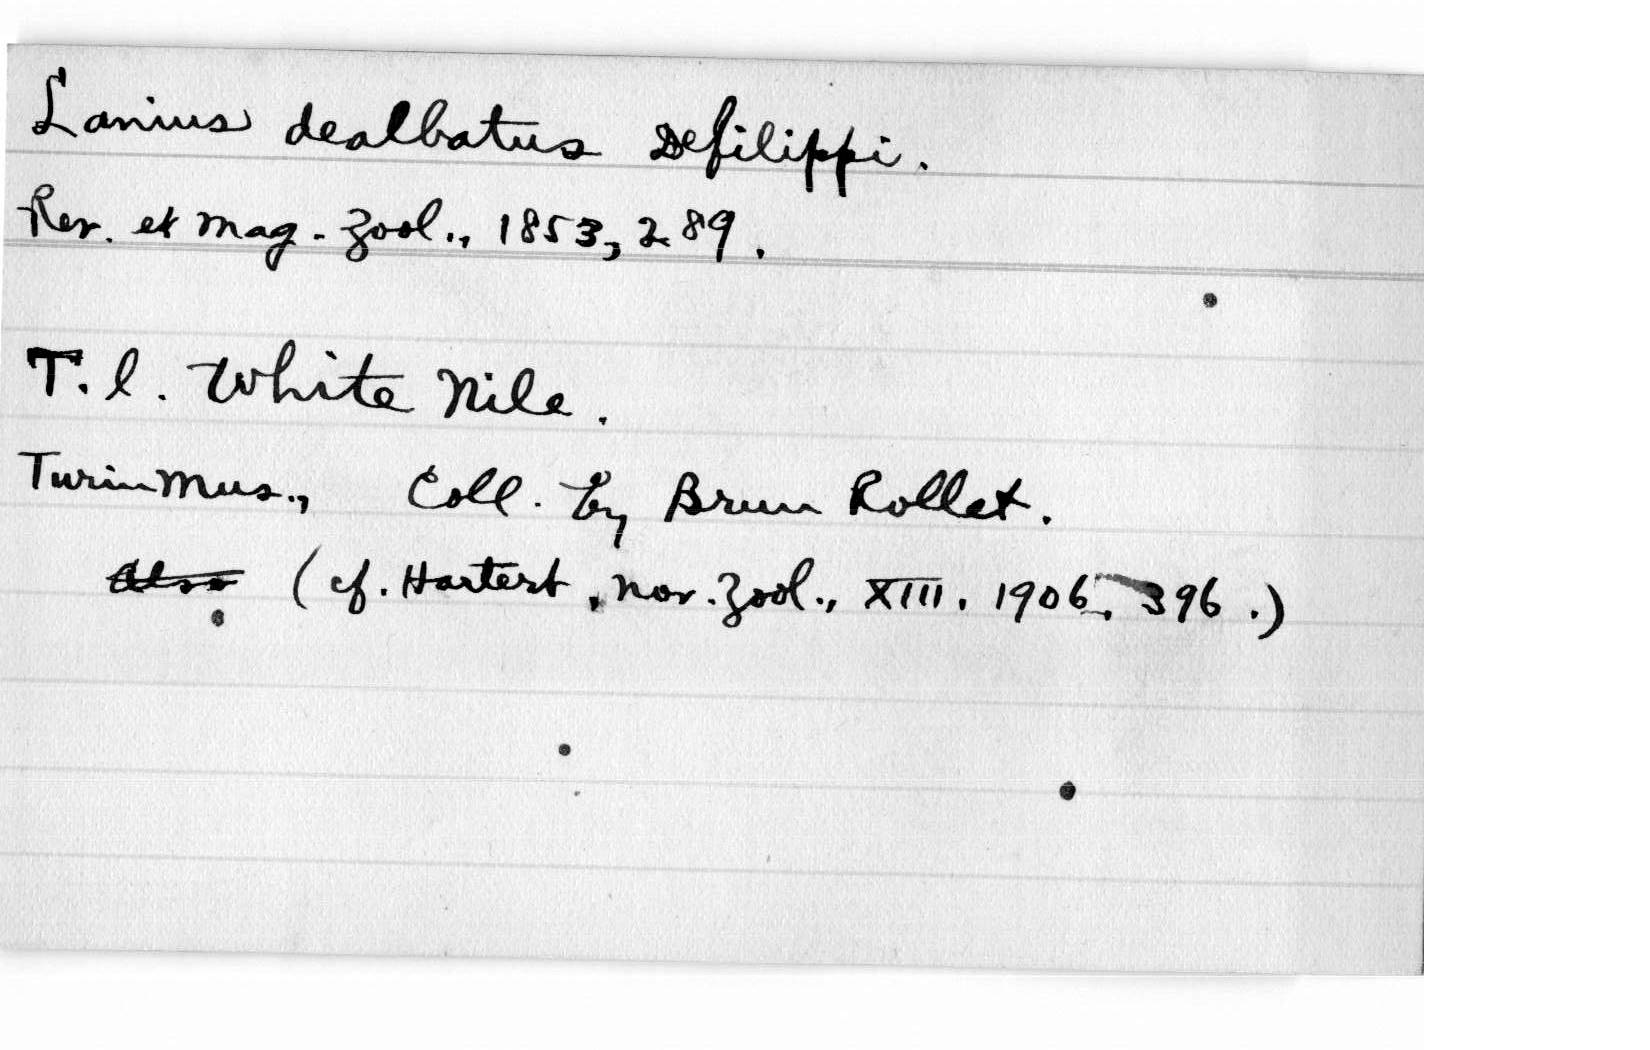 Lanius dealbatus Defilippi.
Rev. et Mag. Zool., 1853, 289.
T. l. White Nile.
Turin Mus., Coll. by Brun Rollet.
Also (cf. Hartert, Nov. Zool., XIII, 1906, 396.)